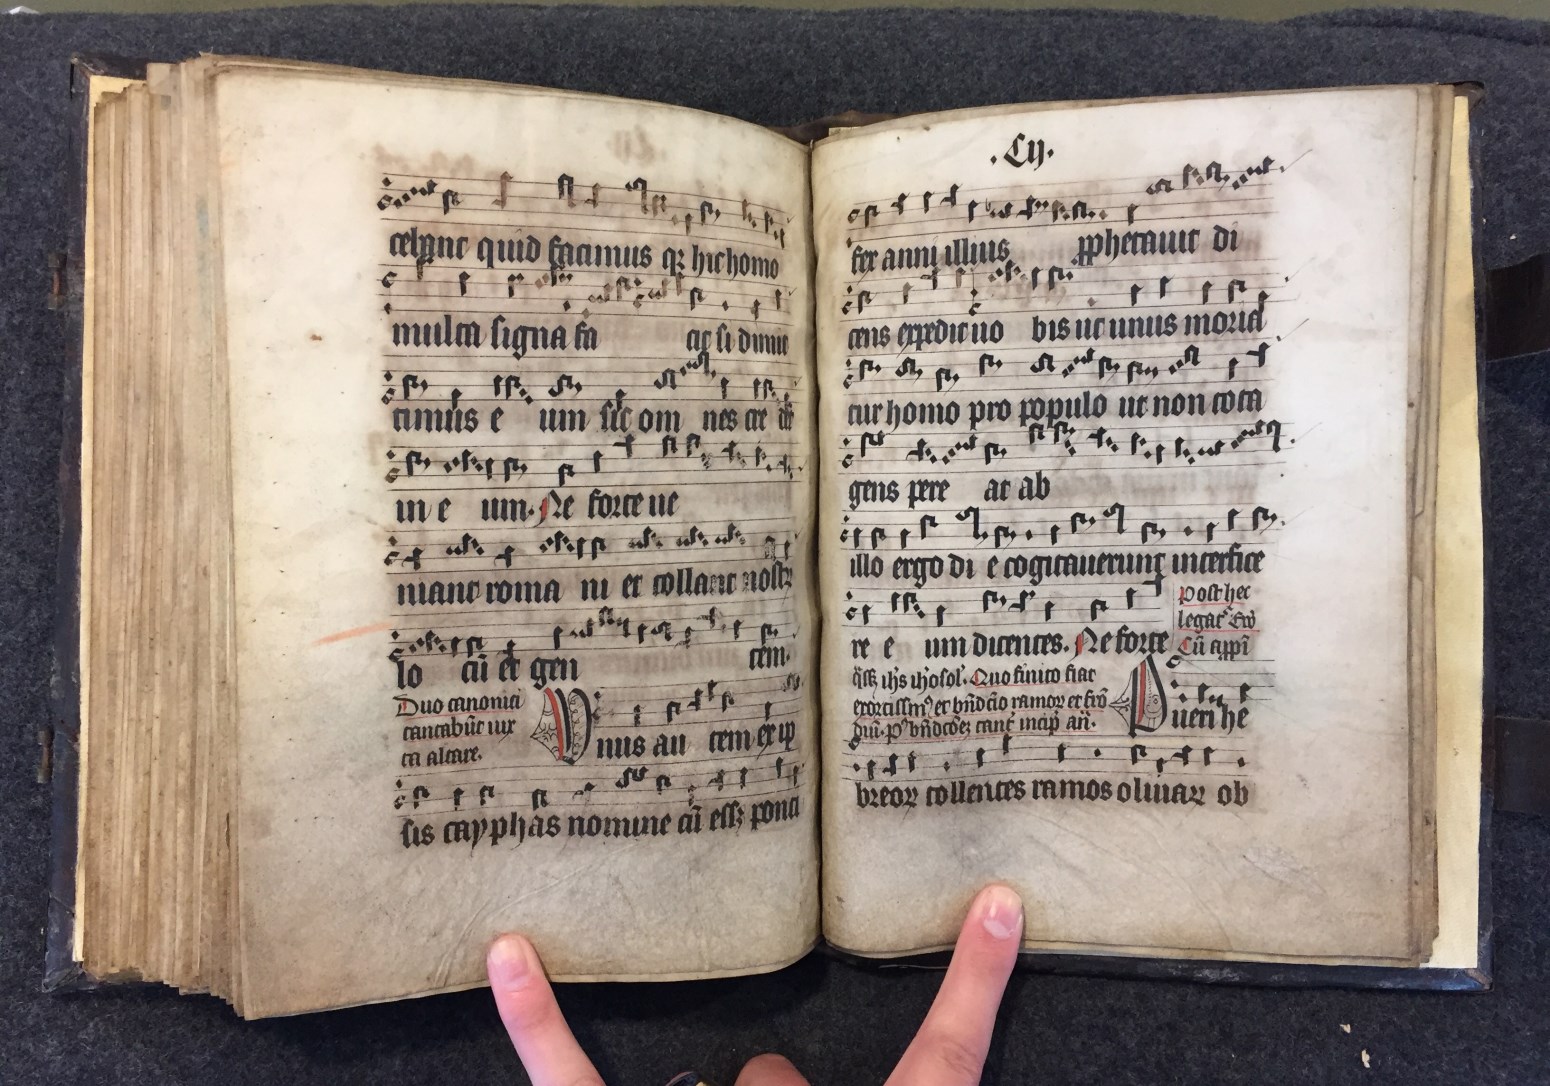 celyut quid facimus qz hic homo
multa signa fa cit si dimit
timus e um sic om nes cre dēt
in e um. Ne forte ve
niant roma ni et tollant nostr
lo cū et gen tem.
Duo canonici
cantabūt iux
ta altare.
Vnus au tem ex ip
sis cayphas nomine cū essz ponti
.Cij.
fex anni illius pphetauit di
cens expedit uo bis ut unus moriat
tur homo pro populo ut non tota
gens pere at ab
illo ergo di e cogitauerunt interfice
re e um dicentes. Ne forte
Post hec
legat Ew
Cū appī
qssz ihs ihosol. Quo finito fiat
exorcissm et bndcio ramoz et
cant incip añ.
Pueri he
breoz tollentes ramos oliuaz ob